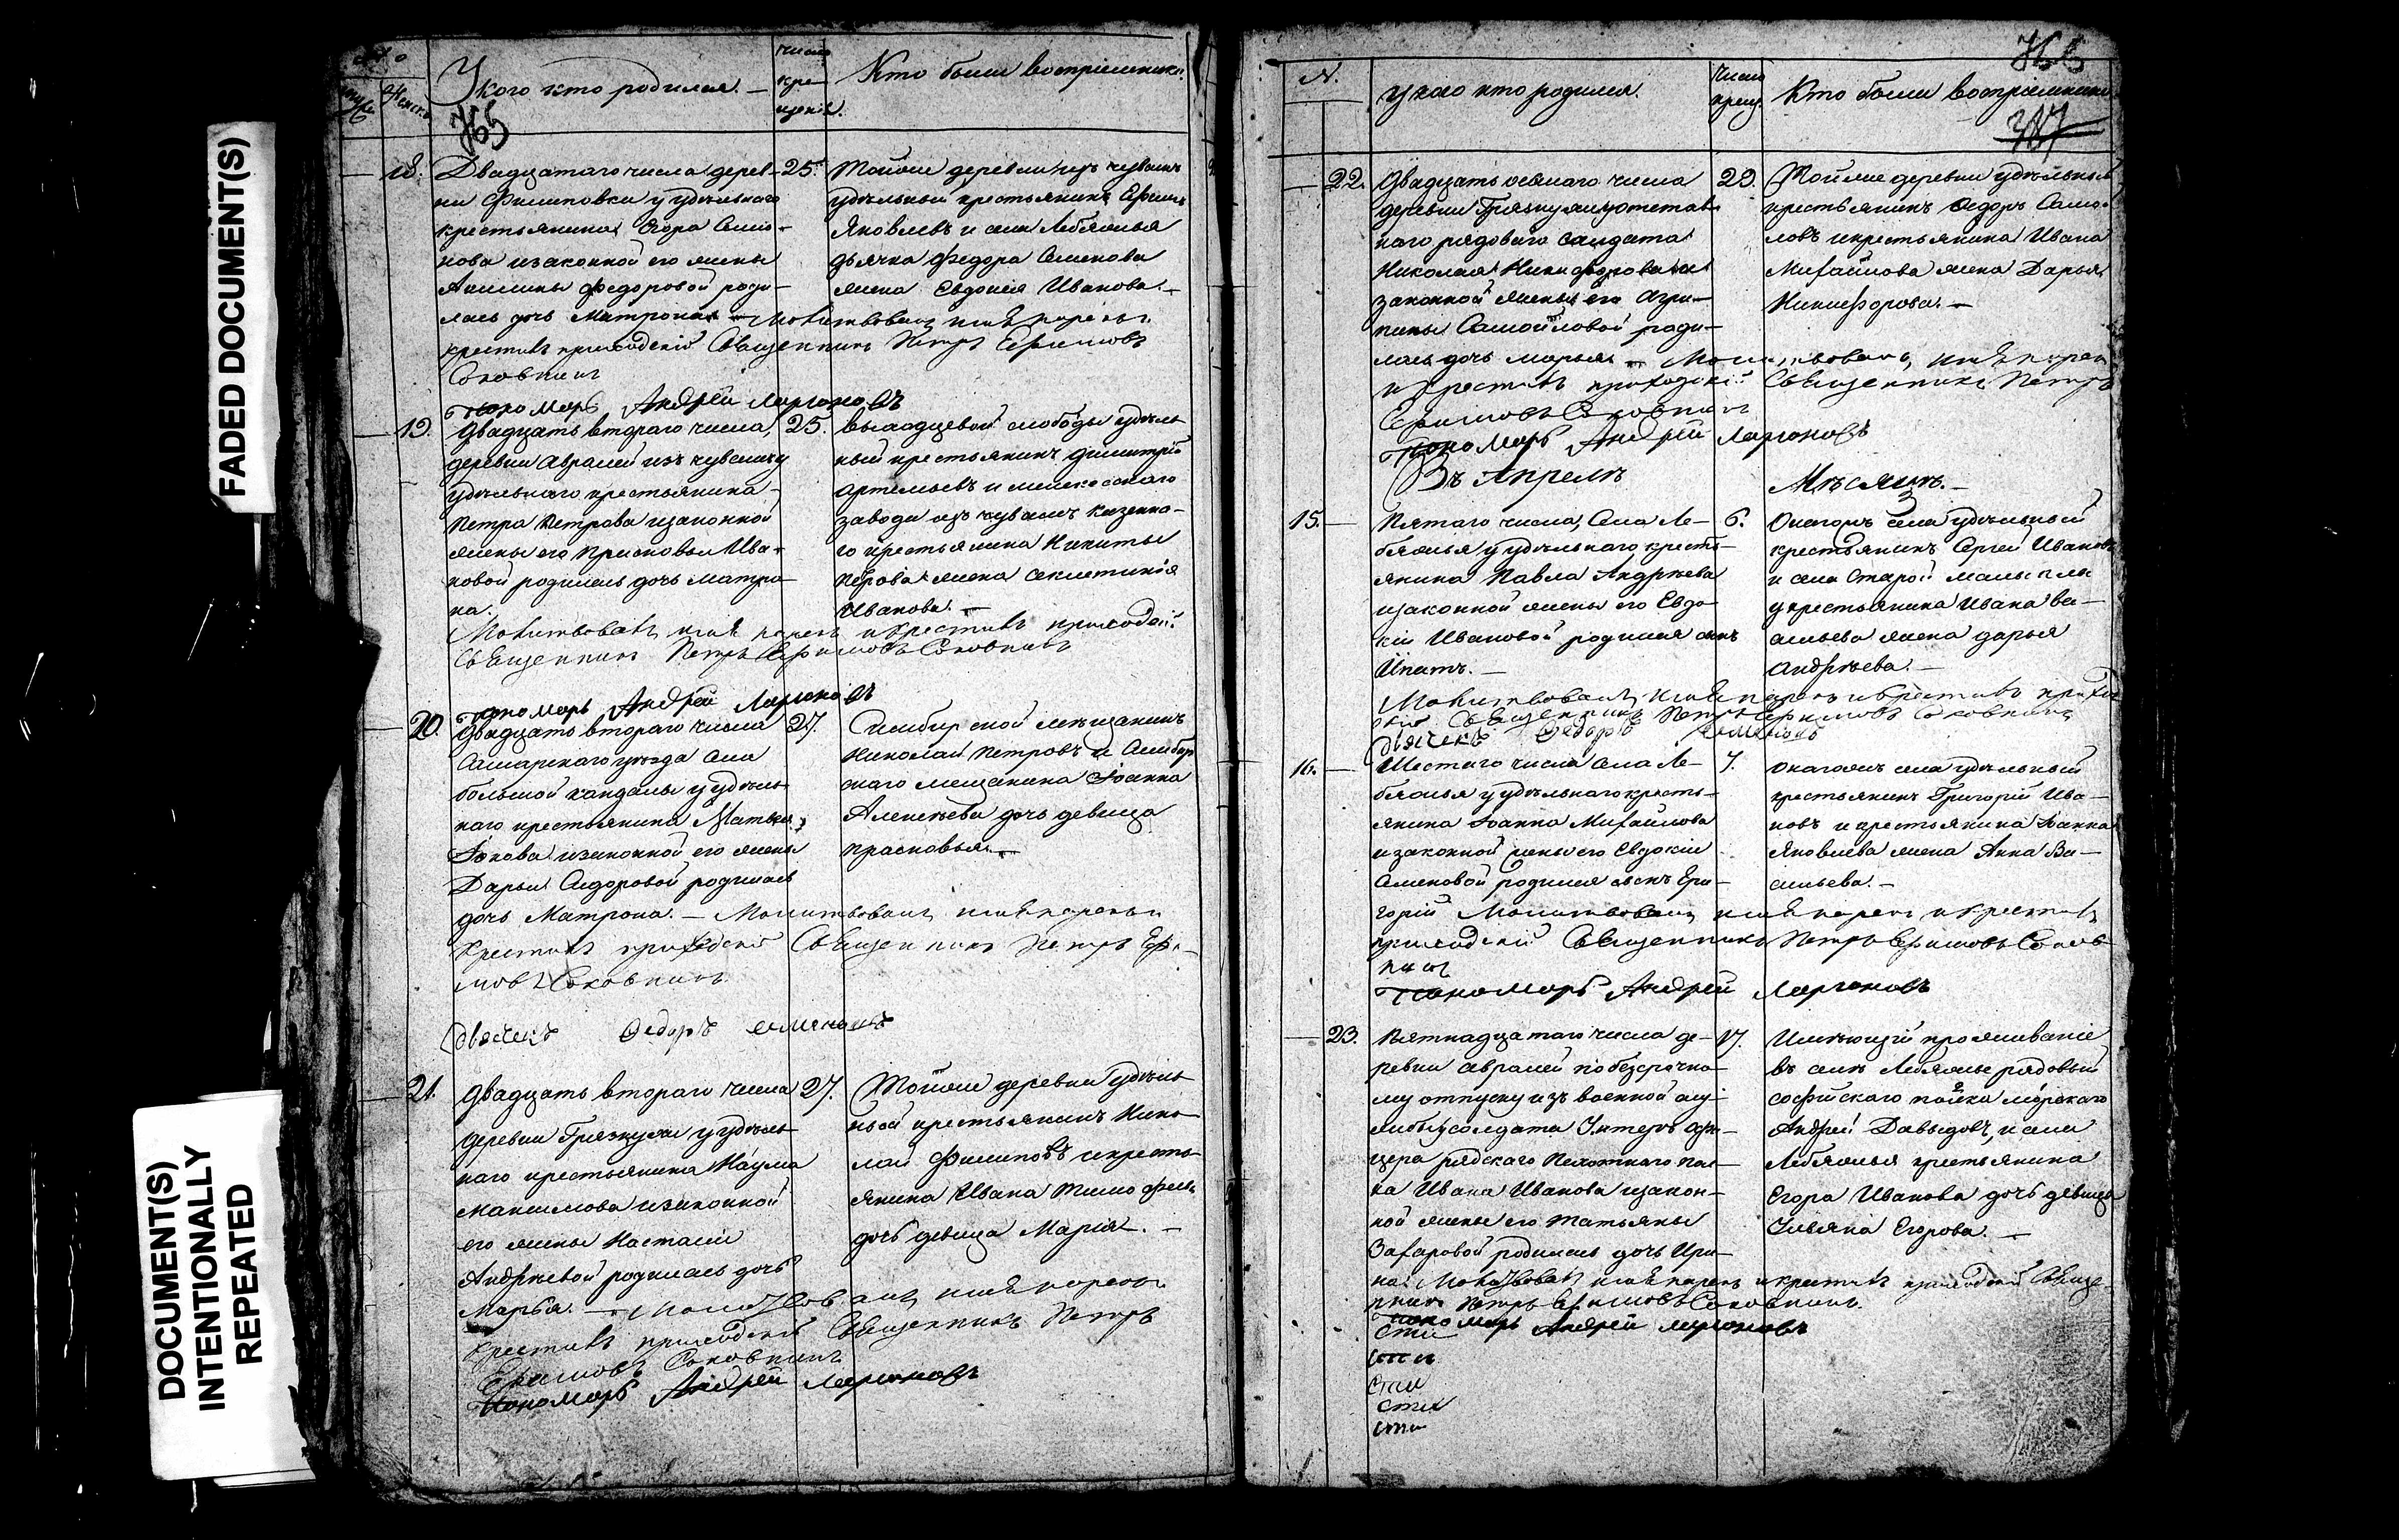 FADED DOCUMENT(S)
DOCUMENT(S)
INTENTIONALLY
REPEATED
У кого кто родился.
число
кре-
щенія.
Кто были воспріемники.
365
18.
Двадцатаго числа дерев-
ни Филиповки у удѣльнаго
крестьянина Егора Семо-
нова изаконной его жены
Акилины Федоровой роди-
лась дочь Матрона
25.
Тойже деревни изъ чувашъ
удѣльный крестьянинъ Ефимъ
Яковлевъ и села Лебяжья
дьячка Федора Семенова
жена Евдокия Иванова.
Молитвовалъ имя нарекъ и
крестилъ приходскій Священникъ Петръ Ефимовъ
Соковнинъ
Пономарь Андрей Ларионовъ
19.
Двадцать втораго числа,
деревни Авралей изъ чувашъ у
удѣльнаго крестьянина
Петра Петрова изаконной
жены его Прасковьи Ива-
новой родилась дочь Матро-
на.
25.
слободы удѣль-
ный крестьянинъ Димитрій
Артемьевъ и мелекесскаго
завода изъ чувашъ казенна-
го крестьянина Никиты
Петрова жена
Иванова.
Молитвовалъ имя нарекъ и крестилъ приходскій
Священникъ Петръ Ефимовъ Соковнинъ
Пономарь Андрей Ларионовъ
20.
Двадцать втораго числа
Самарскаго уѣзда села
большой кандалы у удѣль-
наго крестьянина Матвея
изаконной его жены
Дарьи Сидоровой родилась
дочь Матрона.
27.
Симбирской мѣщанинъ
Николай Петровъ и Симбир
скаго мещанина Іоанна
Алексѣева дочь девица
прасковья.
Молитвовалъ имя нарекъ и
Крестилъ приходскій Священникъ Петръ Ефи-
мовъ Соковнинъ
дьячекъ Федоръ семеновъ
21.
Двадцать втораго числа
деревни Грязнухи у удѣль-
наго крестьянина Наума
максимова изаконной
его жены Настасіи
Андрѣевой родилась дочь
Марья.
27.
Тойже деревни удѣль-
ной крестьянинъ Нико-
лай Филиповъ и кресть-
янина Ивана Тимофеева
дочь девица Марія.
Молитвовалъ имя нарекъ и
крестилъ приходскій Священникъ Петръ
Ефимовъ Соковнинъ
Пономарь Андрей Ларионовъ
366
N.
у кого кто родился.
Число
крещ.
Кто были воспріемники
22.
Двадцать осьмаго числа
деревни Грязнухи у отстав-
наго рядоваго салдата
Николая Никифорова и
законной жены его Агри-
пины Самойловой роди-
лась дочь марья
29.
Тойже деревни удѣльный
крестьянинъ Федоръ Само-
ловъ и крестьянина Ивана
Михайлова жена Дарья
Никифорова.
Молитвовалъ, имя нарекъ
и крестилъ приходскій Священникъ Петръ
Ефимовъ Соковнинъ
Пономарь Андрей Ларионовъ
Въ Апрелѣ
Мѣсяцѣ.
15.
Пятаго числа, Села Ле-
бяжья у удѣльнаго кресть-
янина Павла Андрѣева
изаконной жены его Евдо-
кіи Ивановой родился сынъ
Ипатъ.
6.
Онагожъ села удѣльный
крестьянинъ Сергей Ивановъ
и села Старой малыклы
у крестьянина Ивана Ва-
сильева жена дарья
андрѣева.
Молитвовалъ имя нарекъ и крестилъ приход
скій Священникъ Петръ Ефимовъ Соковнинъ
дьячекъ Федоръ семеновъ
16.
Шестаго числа села Ле-
бяжья у удѣльнаго кресть-
янина Іоанна Михайлова
изаконной жены его Евдокіи
Семеновой родился сынъ Гри-
горій
7.
онагожъ села удѣльный
крестьянинъ Григорій Ива-
новъ и крестьянина Іоанна
Яковлева жена Анна Ва-
сильева.
Молитвовалъ имя нарекъ и крестилъ
приходскій Священникъ Петръ Ефимовъ Соков-
нинъ
Пономарь Андрей Ларионовъ
23.
Пятнадцатаго числа де-
ревни авралей по безсрочно-
му отпуску изъ военной слу-
жбы у солдата Унтеръ офи-
цера рядскаго Пехотнаго пол-
ка Ивана Иванова изакон-
ной жены его Татьяны
Захаровой родилась дочь Ири-
на
17.
Имѣющій проживаніе
въ селѣ Лебяжье рядовый
софійскаго полка морскаго
Андрей Давыдовъ, и села
Лебяжья крестьянина
Егора Иванова дочь девица
Ульяна Егорова.
Молитвовалъ имя нарекъ и крестилъ приходскій Священ-
никъ Петръ Ефимовъ Соковнинъ
Пономарь Андрей Ларионовъ